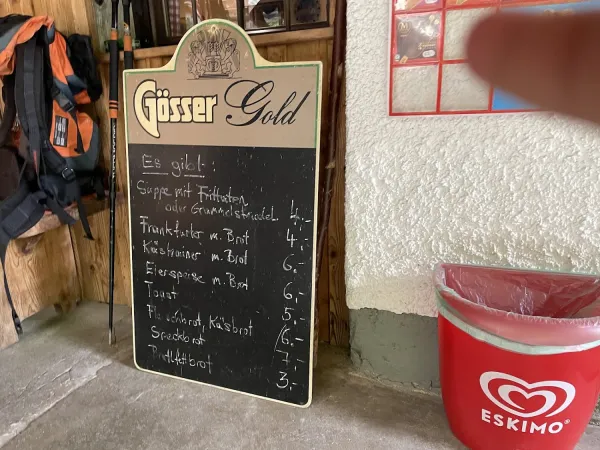 Gösser Gold
Es gibt:
Suppe mit Frittaten
oder Grammelstrudel 4,-
Frankfurter m. Brot 4,-
Käskrainer m. Brot 6,-
Eierspeise m. Brot 6,-
Toast 5,-
Fleischbrot, Käsbrot 6,-
Speckbrot 7,-
Bratlfettbrot 3,-
ESKIMO